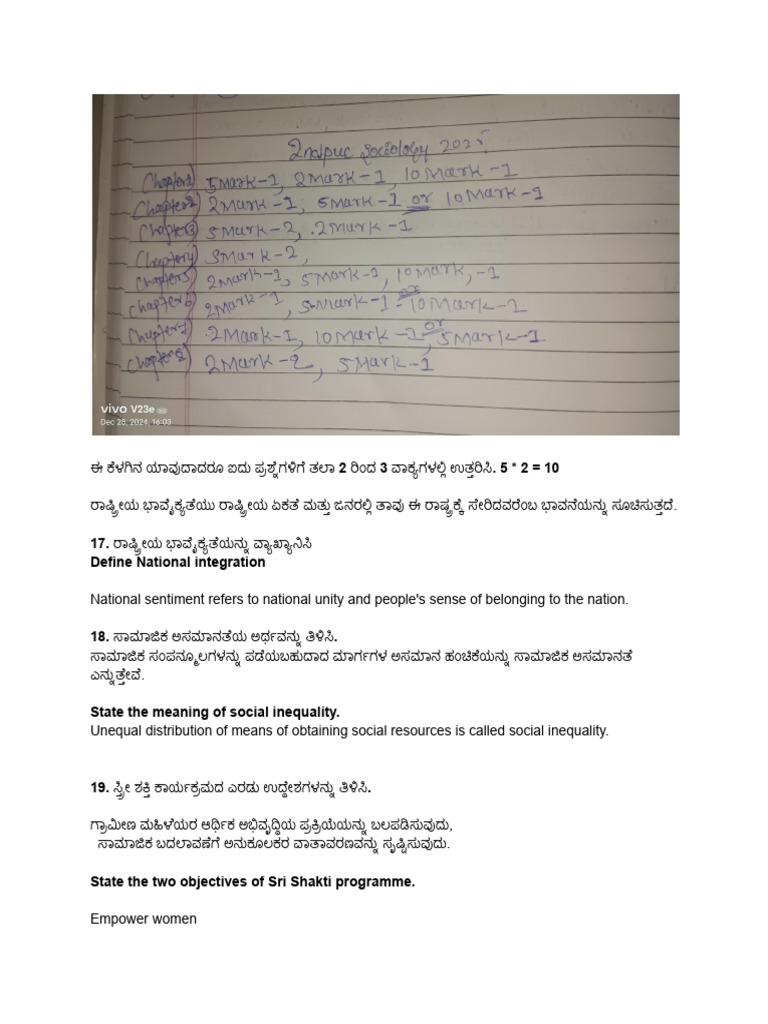 2nd puc Sociology 2025
Chapter1) 5Mark-1, 2Mark-1, 10Mark-1
Chapter2) 2Mark-1, 5Mark-1 or 10Mark-1
Chapter3) 5Mark-2, 2Mark-1
Chapter4) 5Mark-2,
Chapter5) 2Mark-1, 5Mark-1, 10Mark,-1
Chapter6) 2Mark-1, 5Mark-1 - or 10Mark-1
Chapter7) 2Mark-1, 10Mark-1 or 5Mark-1
Chapter8) 2Mark-2, 5Mark-1
vivo V23e 5G
Dec 28, 2024, 16:03
ಈ ಕೆಳಗಿನ ಯಾವುದಾದರೂ ಐದು ಪ್ರಶ್ನೆಗಳಿಗೆ ತಲಾ 2 ರಿಂದ 3 ವಾಕ್ಯಗಳಲ್ಲಿ ಉತ್ತರಿಸಿ. 5 * 2 = 10
ರಾಷ್ಟ್ರೀಯ ಭಾವೈಕ್ಯತೆಯು ರಾಷ್ಟ್ರೀಯ ಏಕತೆ ಮತ್ತು ಜನರಲ್ಲಿ ತಾವು ಈ ರಾಷ್ಟ್ರಕ್ಕೆ ಸೇರಿದವರೆಂಬ ಭಾವನೆಯನ್ನು ಸೂಚಿಸುತ್ತದೆ.
17. ರಾಷ್ಟ್ರೀಯ ಭಾವೈಕ್ಯತೆಯನ್ನು ವ್ಯಾಖ್ಯಾನಿಸಿ
Define National integration
National sentiment refers to national unity and people's sense of belonging to the nation.
18. ಸಾಮಾಜಿಕ ಅಸಮಾನತೆಯ ಅರ್ಥವನ್ನು ತಿಳಿಸಿ.
ಸಾಮಾಜಿಕ ಸಂಪನ್ಮೂಲಗಳನ್ನು ಪಡೆಯಬಹುದಾದ ಮಾರ್ಗಗಳ ಅಸಮಾನ ಹಂಚಿಕೆಯನ್ನು ಸಾಮಾಜಿಕ ಅಸಮಾನತೆ
ಎನ್ನುತ್ತೇವೆ.
State the meaning of social inequality.
Unequal distribution of means of obtaining social resources is called social inequality.
19. ಸ್ತ್ರೀ ಶಕ್ತಿ ಕಾರ್ಯಕ್ರಮದ ಎರಡು ಉದ್ದೇಶಗಳನ್ನು ತಿಳಿಸಿ.
ಗ್ರಾಮೀಣ ಮಹಿಳೆಯರ ಆರ್ಥಿಕ ಅಭಿವೃದ್ಧಿಯ ಪ್ರಕ್ರಿಯೆಯನ್ನು ಬಲಪಡಿಸುವುದು,
ಸಾಮಾಜಿಕ ಬದಲಾವಣೆಗೆ ಅನುಕೂಲಕರ ವಾತಾವರಣವನ್ನು ಸೃಷ್ಟಿಸುವುದು.
State the two objectives of Sri Shakti programme.
Empower women